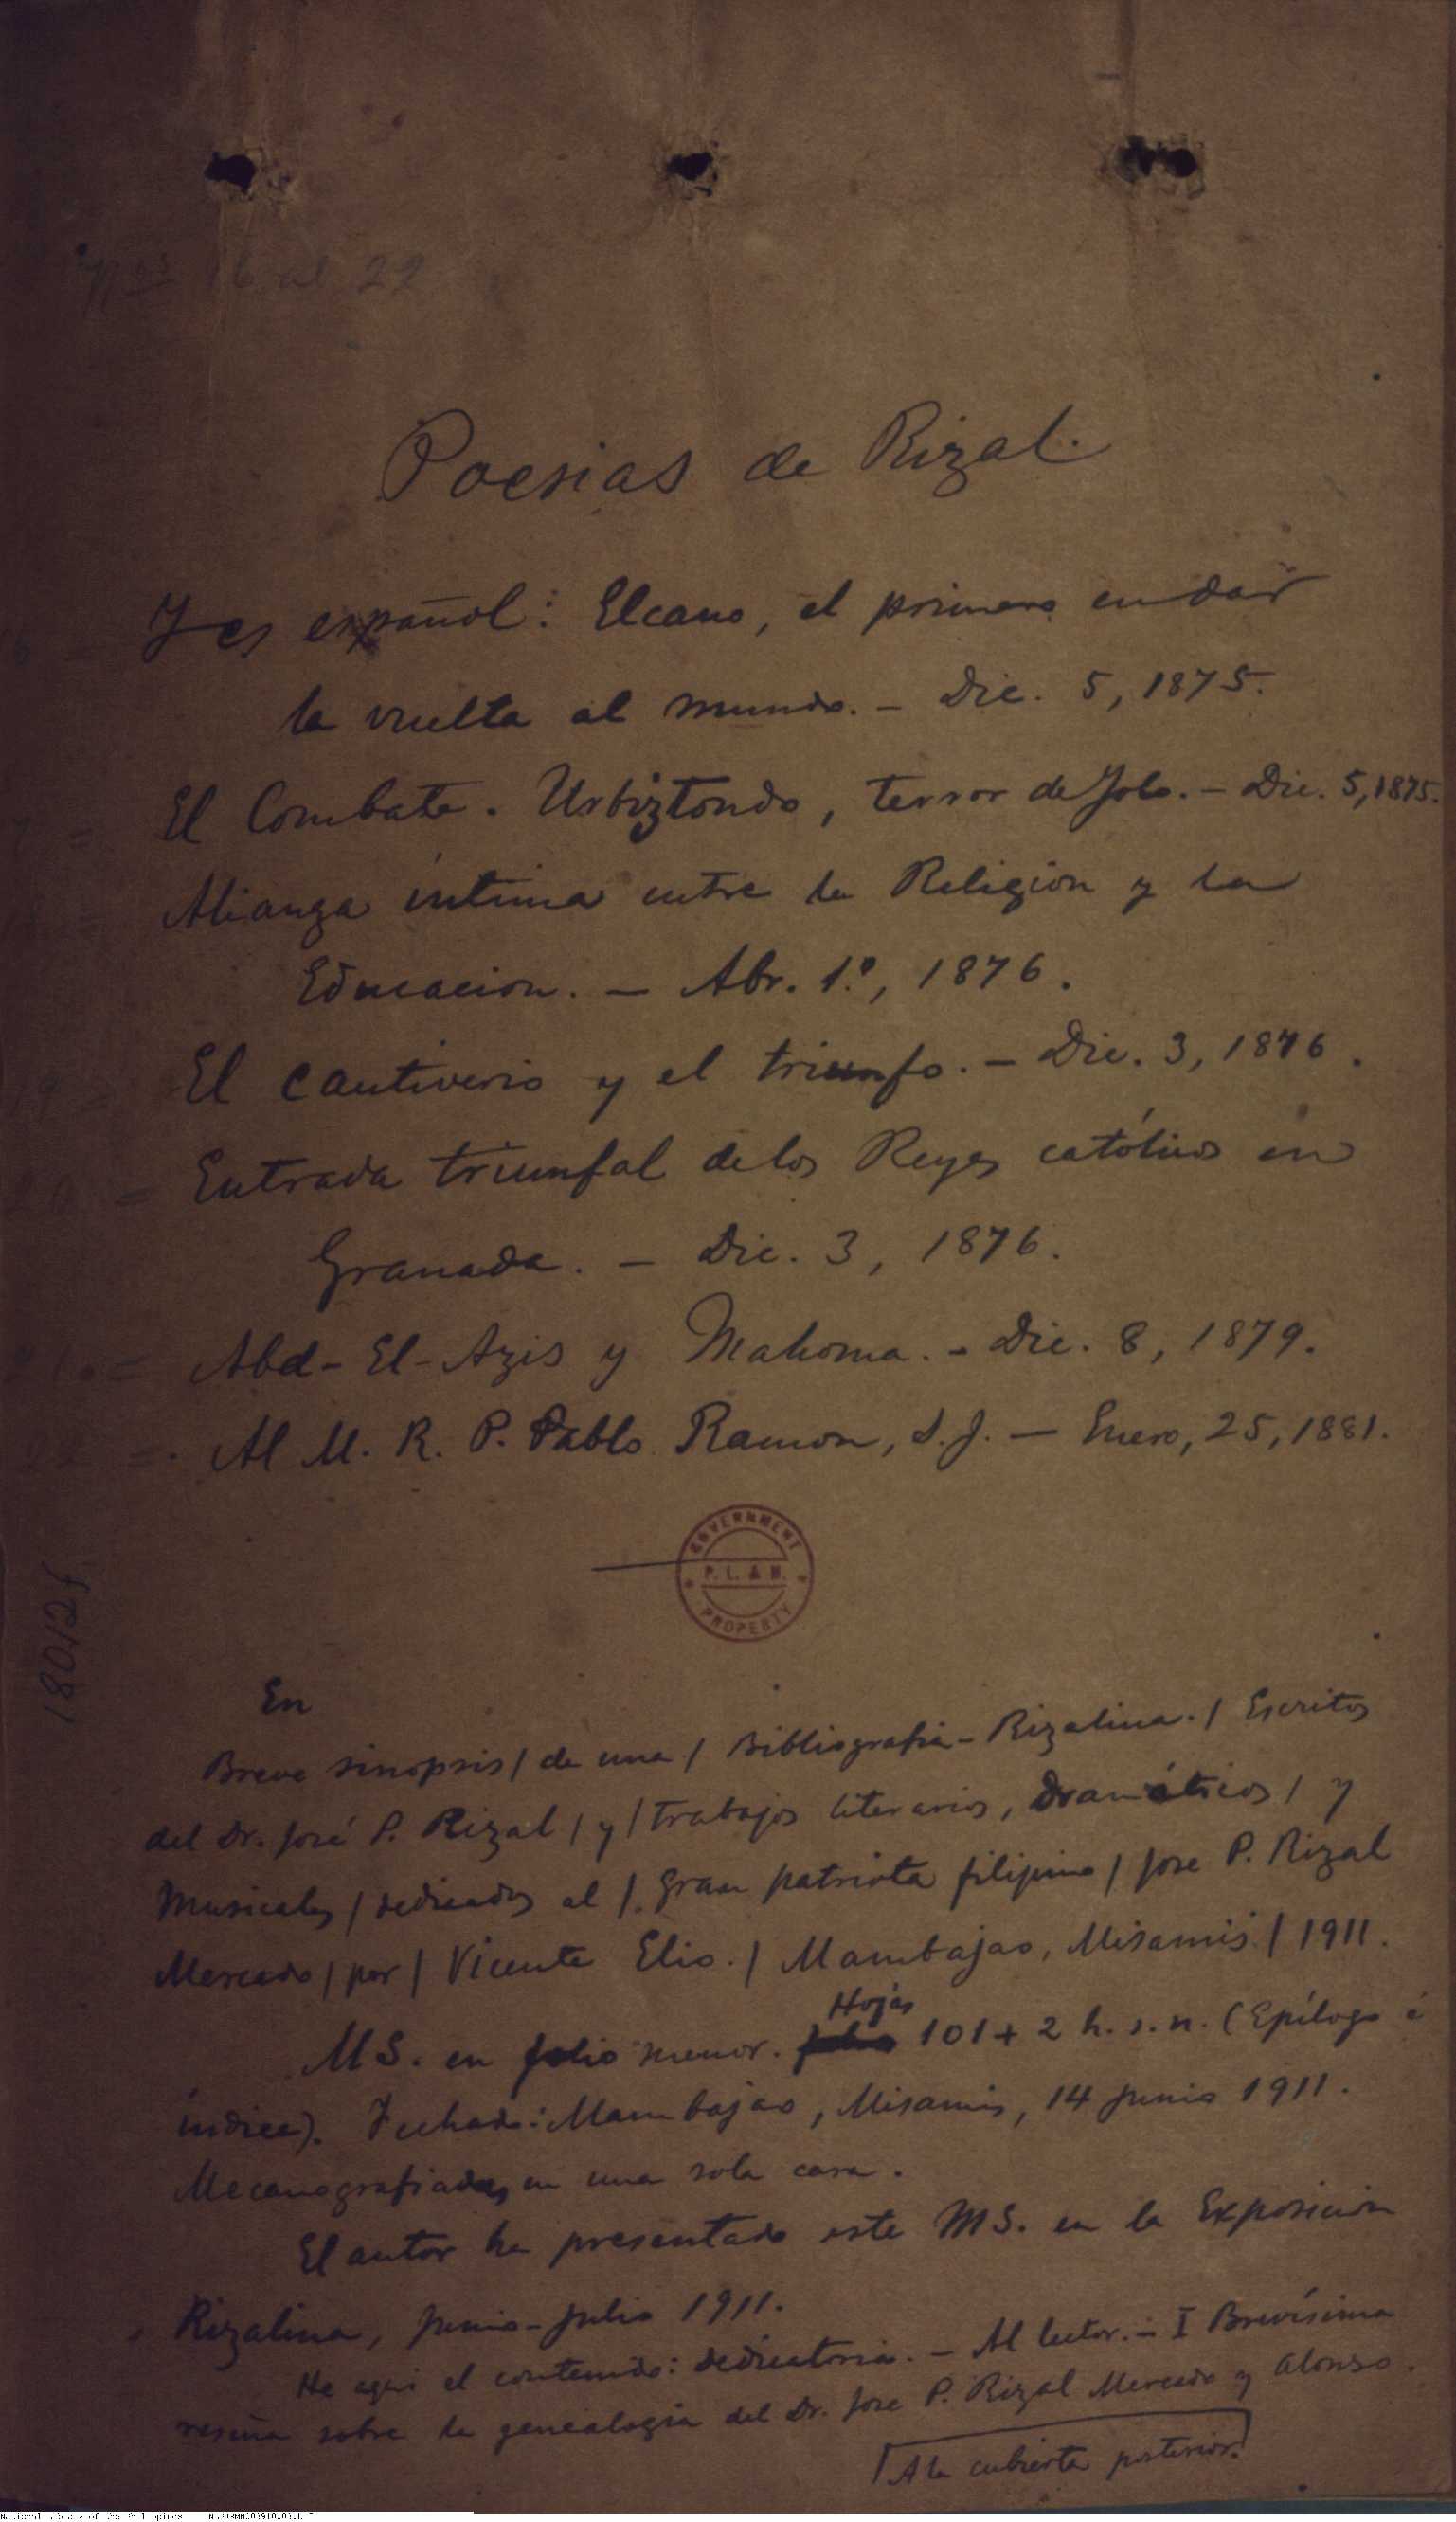 Nos 16 al 22
Poesias de Rizal.
Y es español: Elcano, el primero en dar
la vuelta al mundo. — Dic. 5, 1875.
El Combate. Urbiztondo, terror de Jolo. — Dic. 5, 1875.
Alianza íntima entre la Religion y la
Educacion. — Abr. 1.º, 1876.
19 = El cautiverio y el triunfo. — Dic. 3, 1876.
20 = Entrada triunfal de los Reyes católicos en
Granada. — Dic. 3, 1876.
Abd-El-Azis y Mahoma. — Dic. 8, 1879.
22 = Al M. R. P. Pablo Ramon, S.J. — Enero, 25, 1881.
GOVERNMENT
P. L. & M.
PROPERTY
En
Breve sinopsis / de una / Bibliografia-Rizalina. / Escritos
del Dr. José P. Rizal / y / trabajos literarios, dramáticos / y
musicales / dedicados al / gran patriota filipino / Jose P. Rizal
Mercado / por / Vicente Elio. / Mambajao, Misamis / 1911.
Hojas
MS. en folio menor. 101 + 2 h. s. n. (Epílogo é
índice). Fechado: Mambajao, Misamis, 14 junio 1911.
Mecanografiado, en una sola cara.
El autor ha presentado este MS. en la Exposicion
Rizalina, junio-julio 1911.
He aqui el contenido: dedicatoria. — Al lector. — I Brevísima
reseña sobre la genealogia del Dr. Jose P. Rizal Mercado y Alonso.
A la cubierta posterior.
National Library of the Philippines